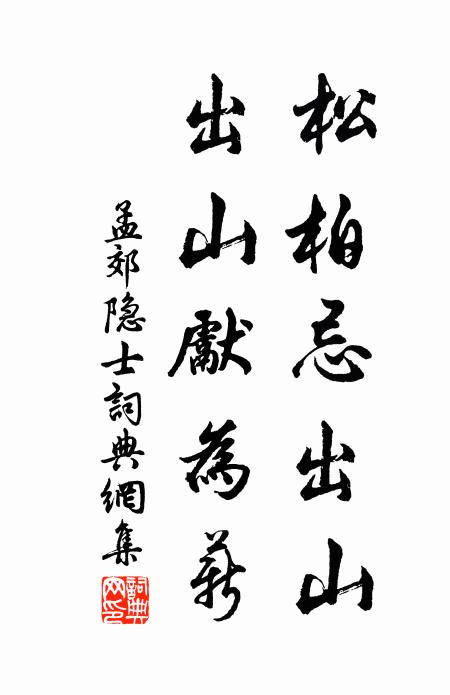 松柏忌出山
出山獻為薪
孟郊隐士詞典網集
詞典网印